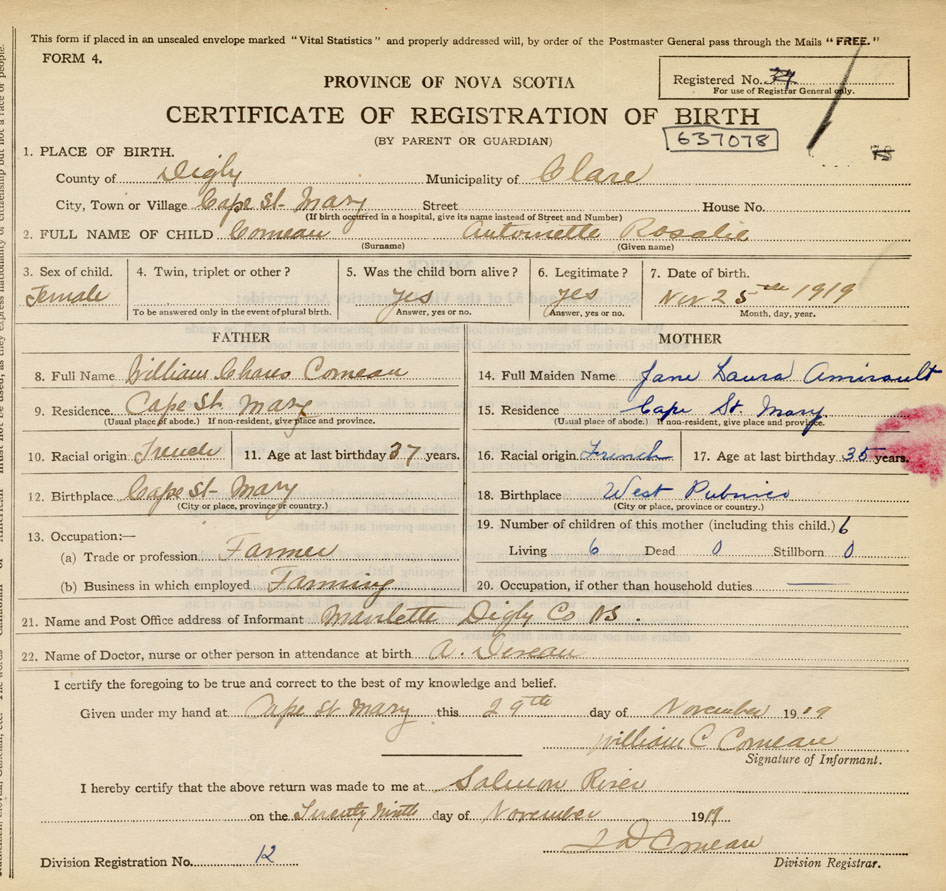 This form if placed in an unsealed envelope marked "Vital Statistics" and properly addressed will, by order of the Postmaster General pass through the Mails "FREE."
FORM 4.
Registered No.
For use of Registrar General only.
PROVINCE OF NOVA SCOTIA
CERTIFICATE OF REGISTRATION OF BIRTH
(BY PARENT OR GUARDIAN)
637078
1. PLACE OF BIRTH.
County of Digby Municipality of Clare
City, Town or Village Cape St. Mary Street House No.
(If birth occurred in a hospital, give its name instead of Street and Number)
2. FULL NAME OF CHILD Comeau Antoinette Rosalie
(Surname) (Given name)
3. Sex of child. 4. Twin, triplet or other? 5. Was the child born alive? 6. Legitimate? 7. Date of birth.
Female yes yes Nov 25th 1919
To be answered only in the event of plural birth. Answer, yes or no. Answer, yes or no. Month, day, year.
FATHER
8. Full Name William Comeau
9. Residence Cape St. Mary
(Usual place of abode.) If non-resident, give place and province.
10. Racial origin French 11. Age at last birthday 37 years.
12. Birthplace Cape St. Mary
(City or place, province or country.)
13. Occupation:—
(a) Trade or profession Farmer
(b) Business in which employed Farming
MOTHER
14. Full Maiden Name Jane Laura Amirault
15. Residence Cape St. Mary
(Usual place of abode.) If non-resident, give place and province.
16. Racial origin French 17. Age at last birthday 35 years.
18. Birthplace West Pubnico
(City or place, province or country.)
19. Number of children of this mother (including this child.) 6
Living 6 Dead 0 Stillborn 0
20. Occupation, if other than household duties
21. Name and Post Office address of Informant Digby Co NS.
22. Name of Doctor, nurse or other person in attendance at birth A.
I certify the foregoing to be true and correct to the best of my knowledge and belief.
Given under my hand at Cape St. Mary this 29th day of November 1919
William C Comeau
Signature of Informant.
I hereby certify that the above return was made to me at Salmon River
on the Twenty Ninth day of November 1919
Comeau
Division Registration No. 12 Division Registrar.